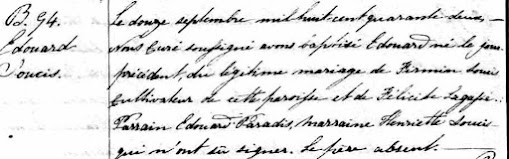 B. 94.
Edouard
Soucis.
Le douze septembre mil huit-cent quarante deux, —
Nous Curé soussigné avons baptisé Edouard né le jour
précédent, du légitime mariage de Fermin Soucis
Cultivateur de cette paroisse et de Félicité Lagassé.
Parrain Edouard Paradis, marraine Henriette Soucis
qui n'ont su signer. Le père absent. —